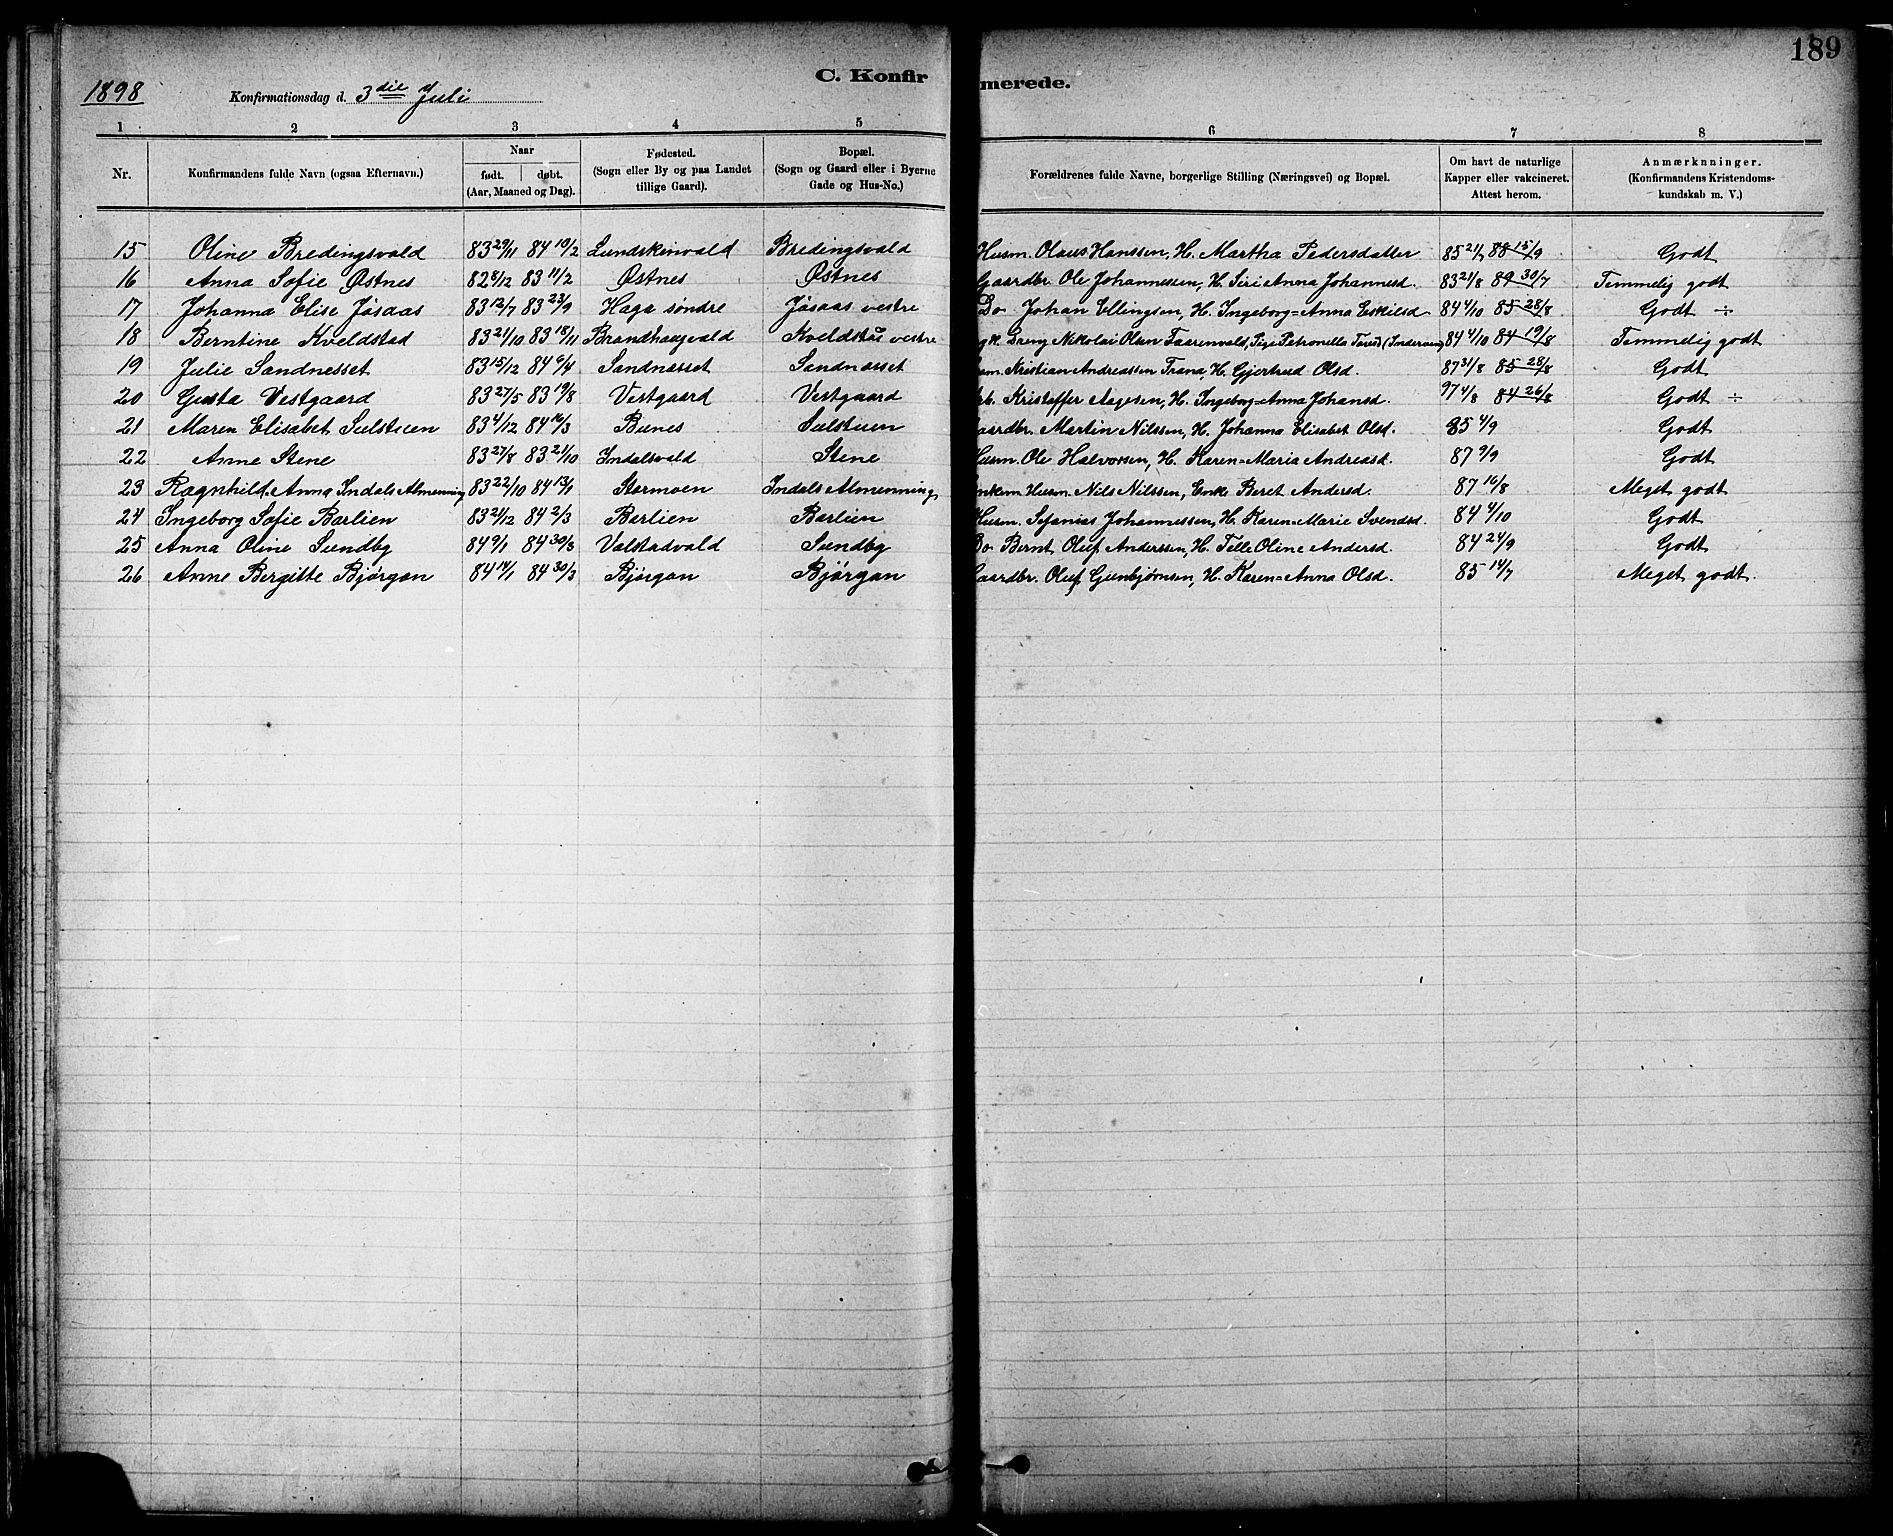 189
C. Konfir merede.
1898 Konfirmationsdag d. 3die Juli
1 2 3 4 5 6 7 8
Nr. Konfirmandens fulde Navn (ogsaa Efternavn.) Naar født. døbt. (Aar, Maaned og Dag). Fødested. (Sogn eller By og paa Landet tillige Gaard). Bopæl. (Sogn og Gaard eller i Byerne Gade og Hus-No.) Forældrenes fulde Navne, borgerlige Stilling (Næringsvei) og Bopæl. Om havt de naturlige Kapper eller vakcineret. Attest herom. Anmærknninger. (Konfirmandens Kristendoms-kundskab m. V.)
15 Oline Bredingsvald 83 29/11 84 10/2 Lundskinvald Bredingsvald Husm. Olaus Hanssen, H. Martha Pedersdatter 85 21/7 88 15/9 Godt
16 Anna Sofie Østnes 82 8/12 83 11/2 Østnes Østnes Gaardbr. Ole Johannessen, H. Siri Anna Johannesd. 83 21/8 89 30/7 Temmelig godt
17 Johanna Elise Jøsaas 83 12/7 83 23/9 Haga søndre Jøsaas vestre Do Johan Ellingsen, H. Ingeborg=Anna Eskilsd. 84 4/10 85 28/8 Godt ÷
18 Berntine Kveldstad 83 21/10 83 18/11 Brandhaugvald Kveldstad vestre Ugk. Dreng Nikolai Olsen Faarenvald, Pige Petronella (Inderøen) 84 4/10 84 19/8 Temmelig godt
19 Julie Sandnesset 83 15/12 84 6/4 Sandnæsset Sandnæsset Kristian Andreassen Trana, H. Gjertrud Olsd. 87 31/8 85 28/8 Godt
20 Gusta Vestgaard 83 27/5 83 19/8 Vestgaard Vestgaard Kristoffer Aagesen, H. Ingeborg=Anna Johansd. 97 4/8 84 26/8 Godt ÷
21 Maren Elisabet Sulstuen 83 4/12 84 16/3 Bunes Sulstuen Gaardbr. Martin Nilssen, H. Johanna Elisabet Olsd. 85 4/9 Godt
22 Anne Stene 83 27/8 83 21/10 Indalsvald Stene Husm. Ole Halvorsen, H. Karen=Maria Andreasd. 87 9/9 Godt
23 Ragnhild Anna Indals Almenning 83 22/10 84 13/1 Stormoen Indals Almenning Enkem. Husm. Nils Nilssen, Enke Beret Andersd. 87 16/8 Meget godt
24 Ingeborg Sofie Barlien 83 21/12 84 2/3 Barlien Barlien Husm. Sefanias Johannessen, H. Karen=Marie Svendsd. 84 4/10 Godt
25 Anna Oline Sundby 84 9/1 84 30/3 Valstadvald Sundby Do Bernt Oluf Anderssen, H. Telle Oline Andersd. 84 24/9 Godt
26 Anne Bergitte Bjørgan 84 14/1 84 30/3 Bjørgan Bjørgan Gaardbr. Oluf Gunbjørnsen, H. Karen=Anna Olsd. 85 14/7 Meget godt.